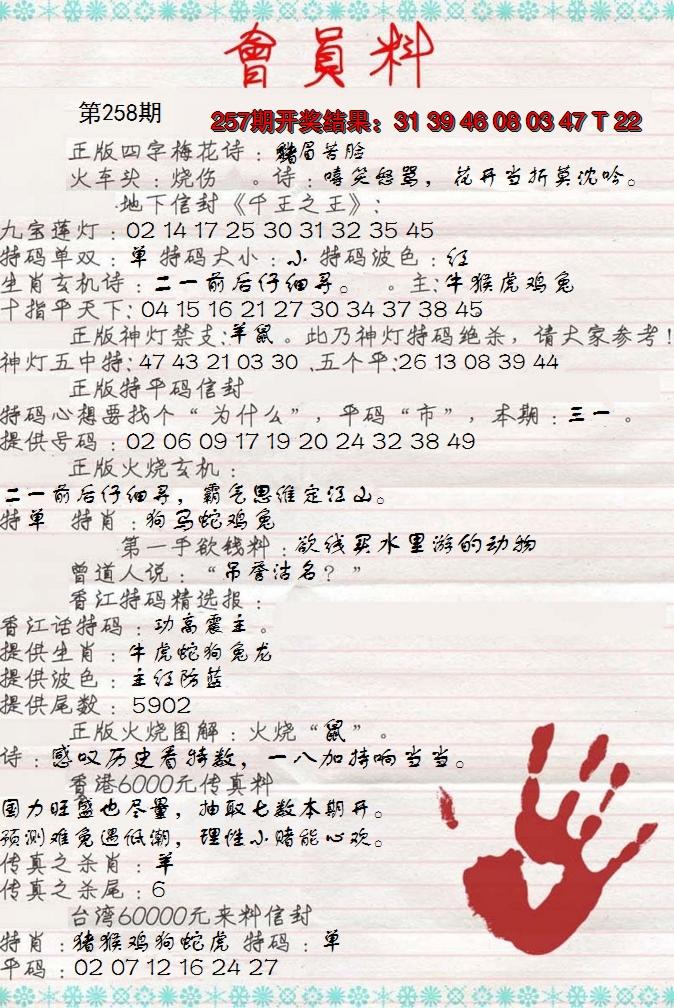 會員料
第258期
257期开奖结果：31 39 46 08 03 47 T 22
正版四字梅花诗：豬眉苦脸
火车头：烧伤 。诗：嘻笑怒骂，花开当折莫沈吟。
·地下信封《千王之王》：
九宝莲灯：02 14 17 25 30 31 32 35 45
特码单双：单 特码大小：小 特码波色：红
生肖玄机诗：二一前后仔细寻。 。主：牛猴虎鸡兔
十指平天下：04 15 16 21 27 30 34 37 38 45
正版神灯禁支：羊鼠。此乃神灯特码绝杀，请大家参考！
神灯五中特：47 43 21 03 30 .五个平：26 13 08 39 44
正版特平码信封
特码心想要找个“为什么”，平码“市”，本期：三一。
提供号码：02 06 09 17 19 20 24 32 38 49
正版火烧玄机：
二一前后仔细寻，霸气思维定江山。
特单 特肖：狗马蛇鸡兔
第一手欲钱料：欲线买水里游的动物
曾道人说：“吊誉沽名？”
香江特码精选报：
香江话特码：功高震主。
提供生肖：牛虎蛇狗兔龙
提供波色：主红防蓝
提供尾数：5902
正版火烧图解：火烧“鼠”。
诗：感叹历史看特数，一八加持响当当。
香港6000元传真料
国力旺盛也尽量，抽取七数本期开。
预测难免遇低潮，理性小赌能心欢。
传真之杀肖：羊
传真之杀尾：6
台湾60000元来料信封
特肖：猪猴鸡狗蛇虎 特码：单
平码：02 07 12 16 24 27